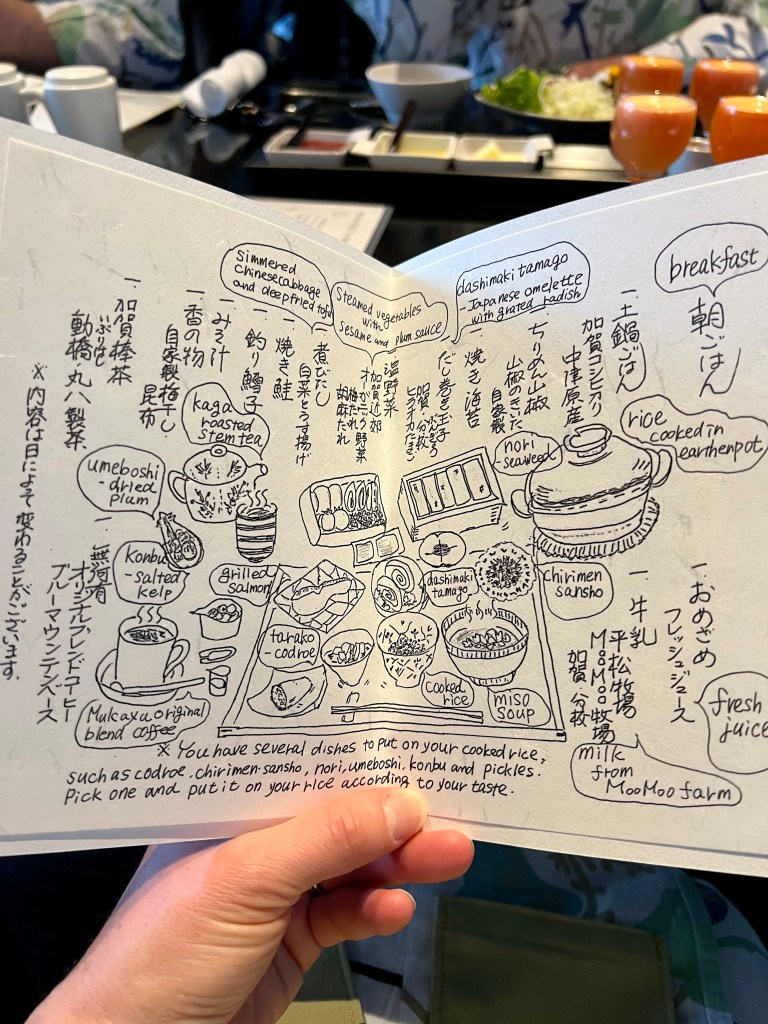 breakfast
朝ごはん
一 土鍋ごはん
加賀コシヒカリ
中津原産
rice
cooked in
earthenpot
一 ちりめん山椒
山椒のきいた
自家製
一 焼き海苔
nori
-seaweed
一 だし巻き玉子
加賀・分校
dashimaki tamago
-Japanese omelette
with grated radish
一 温野菜
加賀近郊
野菜
梅だれ
胡麻だれ
Steamed vegetables
with
sesame and plum sauce
一 煮びたし
白菜とうす揚げ
Simmered
Chinese cabbage
and deepfried tofu
一 焼き鮭
一 釣り鱈子
一 みそ汁
一 香の物
自家製梅干し
昆布
一 加賀棒茶
いぶりばし
動橋・丸八製茶
kaga
roasted
stem tea
umeboshi
-dried
plum
Konbu
-salted
kelp
grilled
salmon
dashimaki
tamago
chirimen
sansho
tarako
-codroe
cooked
rice
miso
soup
一 おめざめ
フレッシュジュース
fresh
juice
一 牛乳
平松牧場
MooMoo牧場
加賀・分校
milk
from
MooMoo farm
一 無何有
オリジナルブレンドコーヒー
ブルーマウンテンベース
Mukayu original
blend coffee
※ 内容は日によって変わることがございます。
※ You have several dishes to put on your cooked rice,
such as codroe, chirimen-sansho, nori, umeboshi, konbu and pickles.
Pick one and put it on your rice according to your taste.